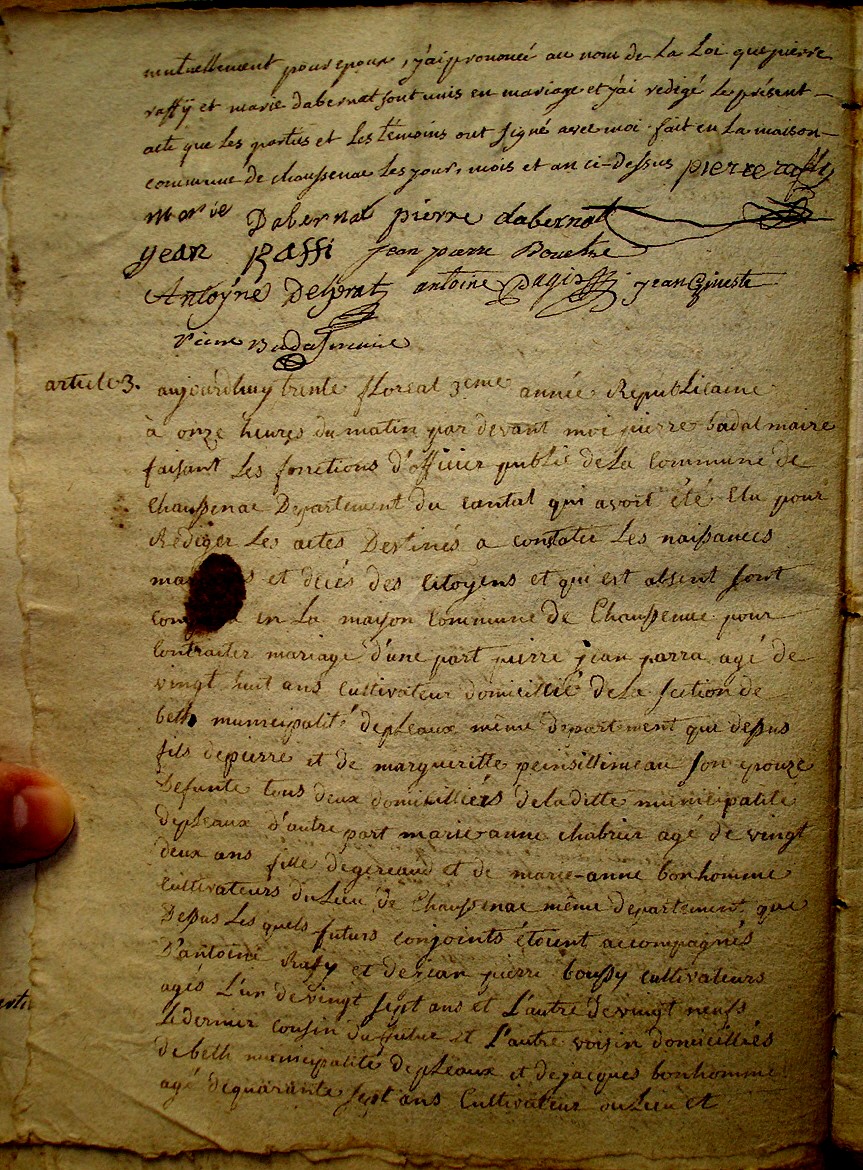 mutuellement pour epoux, j'ai prononcé au nom de la Loi que pierre
raffÿ et marie dabernat sont unis en mariage et j'ai redigé le présent
acte que les parties et les témoins ont signé avec moi fait en la maison
commune de chaussenac les jour, mois et an ci-dessus pierre raffy
marie Dabernat pierre dabernat
jean Raffi jean pierre
Antoyne Delprat antoine jean Gineste
article 3. aujourdhuy trente floreal 3eme année Republicaine
à onze heures du matin par devant moi pierre badal maire
faisant les fonctions d'officier public de la commune de
Chaussenac Departement du cantal qui avoit été Elu pour
Rediger les actes Destinés a constater les naissances
et décés des Citoyens et qui est absent sont
en la maison commune de Chaussenac pour
contracter mariage d'une part pierre jean parra agé de
vingt huit ans Cultivateur domicillié de la section de
beth municipalité depleaux même departement que dessus
fils de pierre et de margueritte son epouze
Defunte tous deux domicilliés de la ditte municipalité
depleaux d'autre part marie-anne chabrier agé de vingt
deux ans fille de gereaud et de marie-anne bonhomme
Cultivateurs du Lieu de Chaussenac même departement que
Dessus Les quels futurs conjoints étoient accompagnés
D'antoine Rafy et de jean pierre boussy cultivateurs
agés L'un de vingt sept ans et L'autre de vingt neufs
Le dernier cousin du futur et L'autre voisin domicilliés
de beth municipalité depleaux et de jacques bonhomme
agé de quarante sept ans Cultivateur du Lieu et